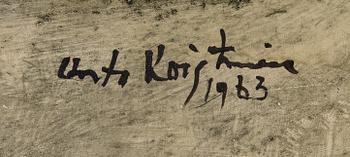 Unto Koistinen
1963